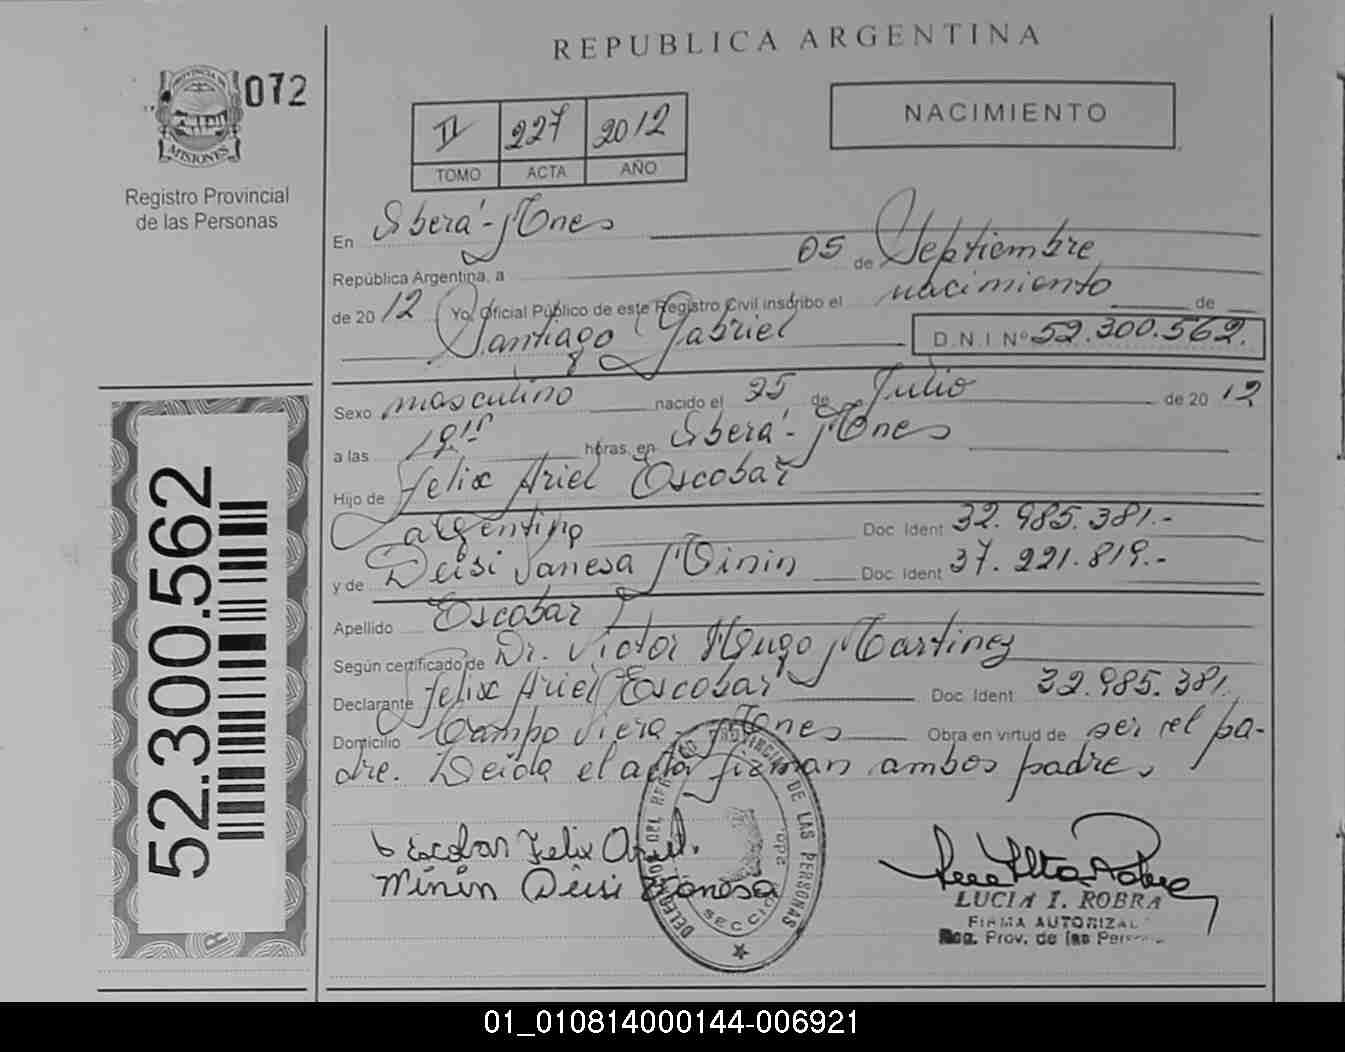 REPUBLICA ARGENTINA
072
PROVINCIA DE
MISIONES
Registro Provincial
de las Personas
II 227 2012
TOMO ACTA AÑO
NACIMIENTO
En Oberá - Mnes
República Argentina, a 05 de Septiembre
de 2012 Yo, Oficial Público de este Registro Civil inscribo el nacimiento de
Santiago Gabriel D.N.I Nº 52.300.562.
Sexo masculino nacido el 25 de Julio de 2012
a las horas, en Oberá - Mnes
Hijo de Felix Ariel Escobar
argentino Doc Ident 32.985.381.-
y de Deisi Vanesa Minin Doc Ident 37.221.819.-
Apellido Escobar
Según certificado de Dr. Victor Hugo Martinez
Declarante Felix Ariel Escobar Doc Ident 32.985.381
Domicilio Campo Viera - Mnes Obra en virtud de ser el pa-
dre. Leida el acta firman ambos padres
Escobar Felix Ariel.
Minin Deisi Vanesa
PROVINCIAL DE LAS PERSONAS
SECCION
LUCIA I. ROBRA
FIRMA AUTORIZAD
Reg. Prov. de las Personas
52.300.562
01_010814000144-006921